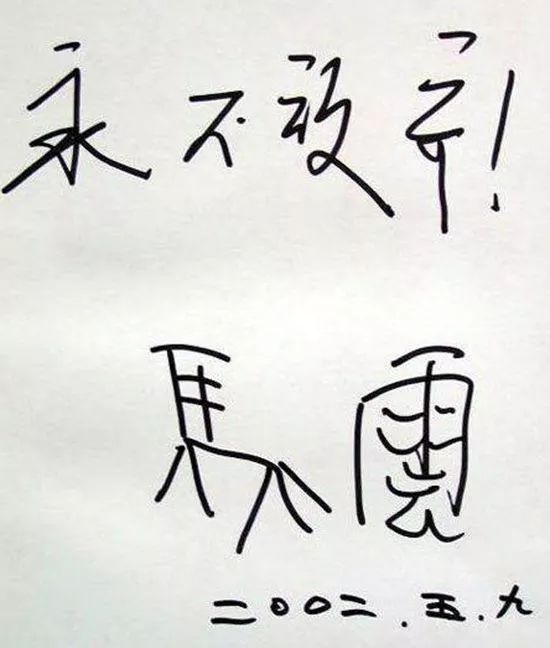 永不放弃!
馬雲
二〇〇二.五.九